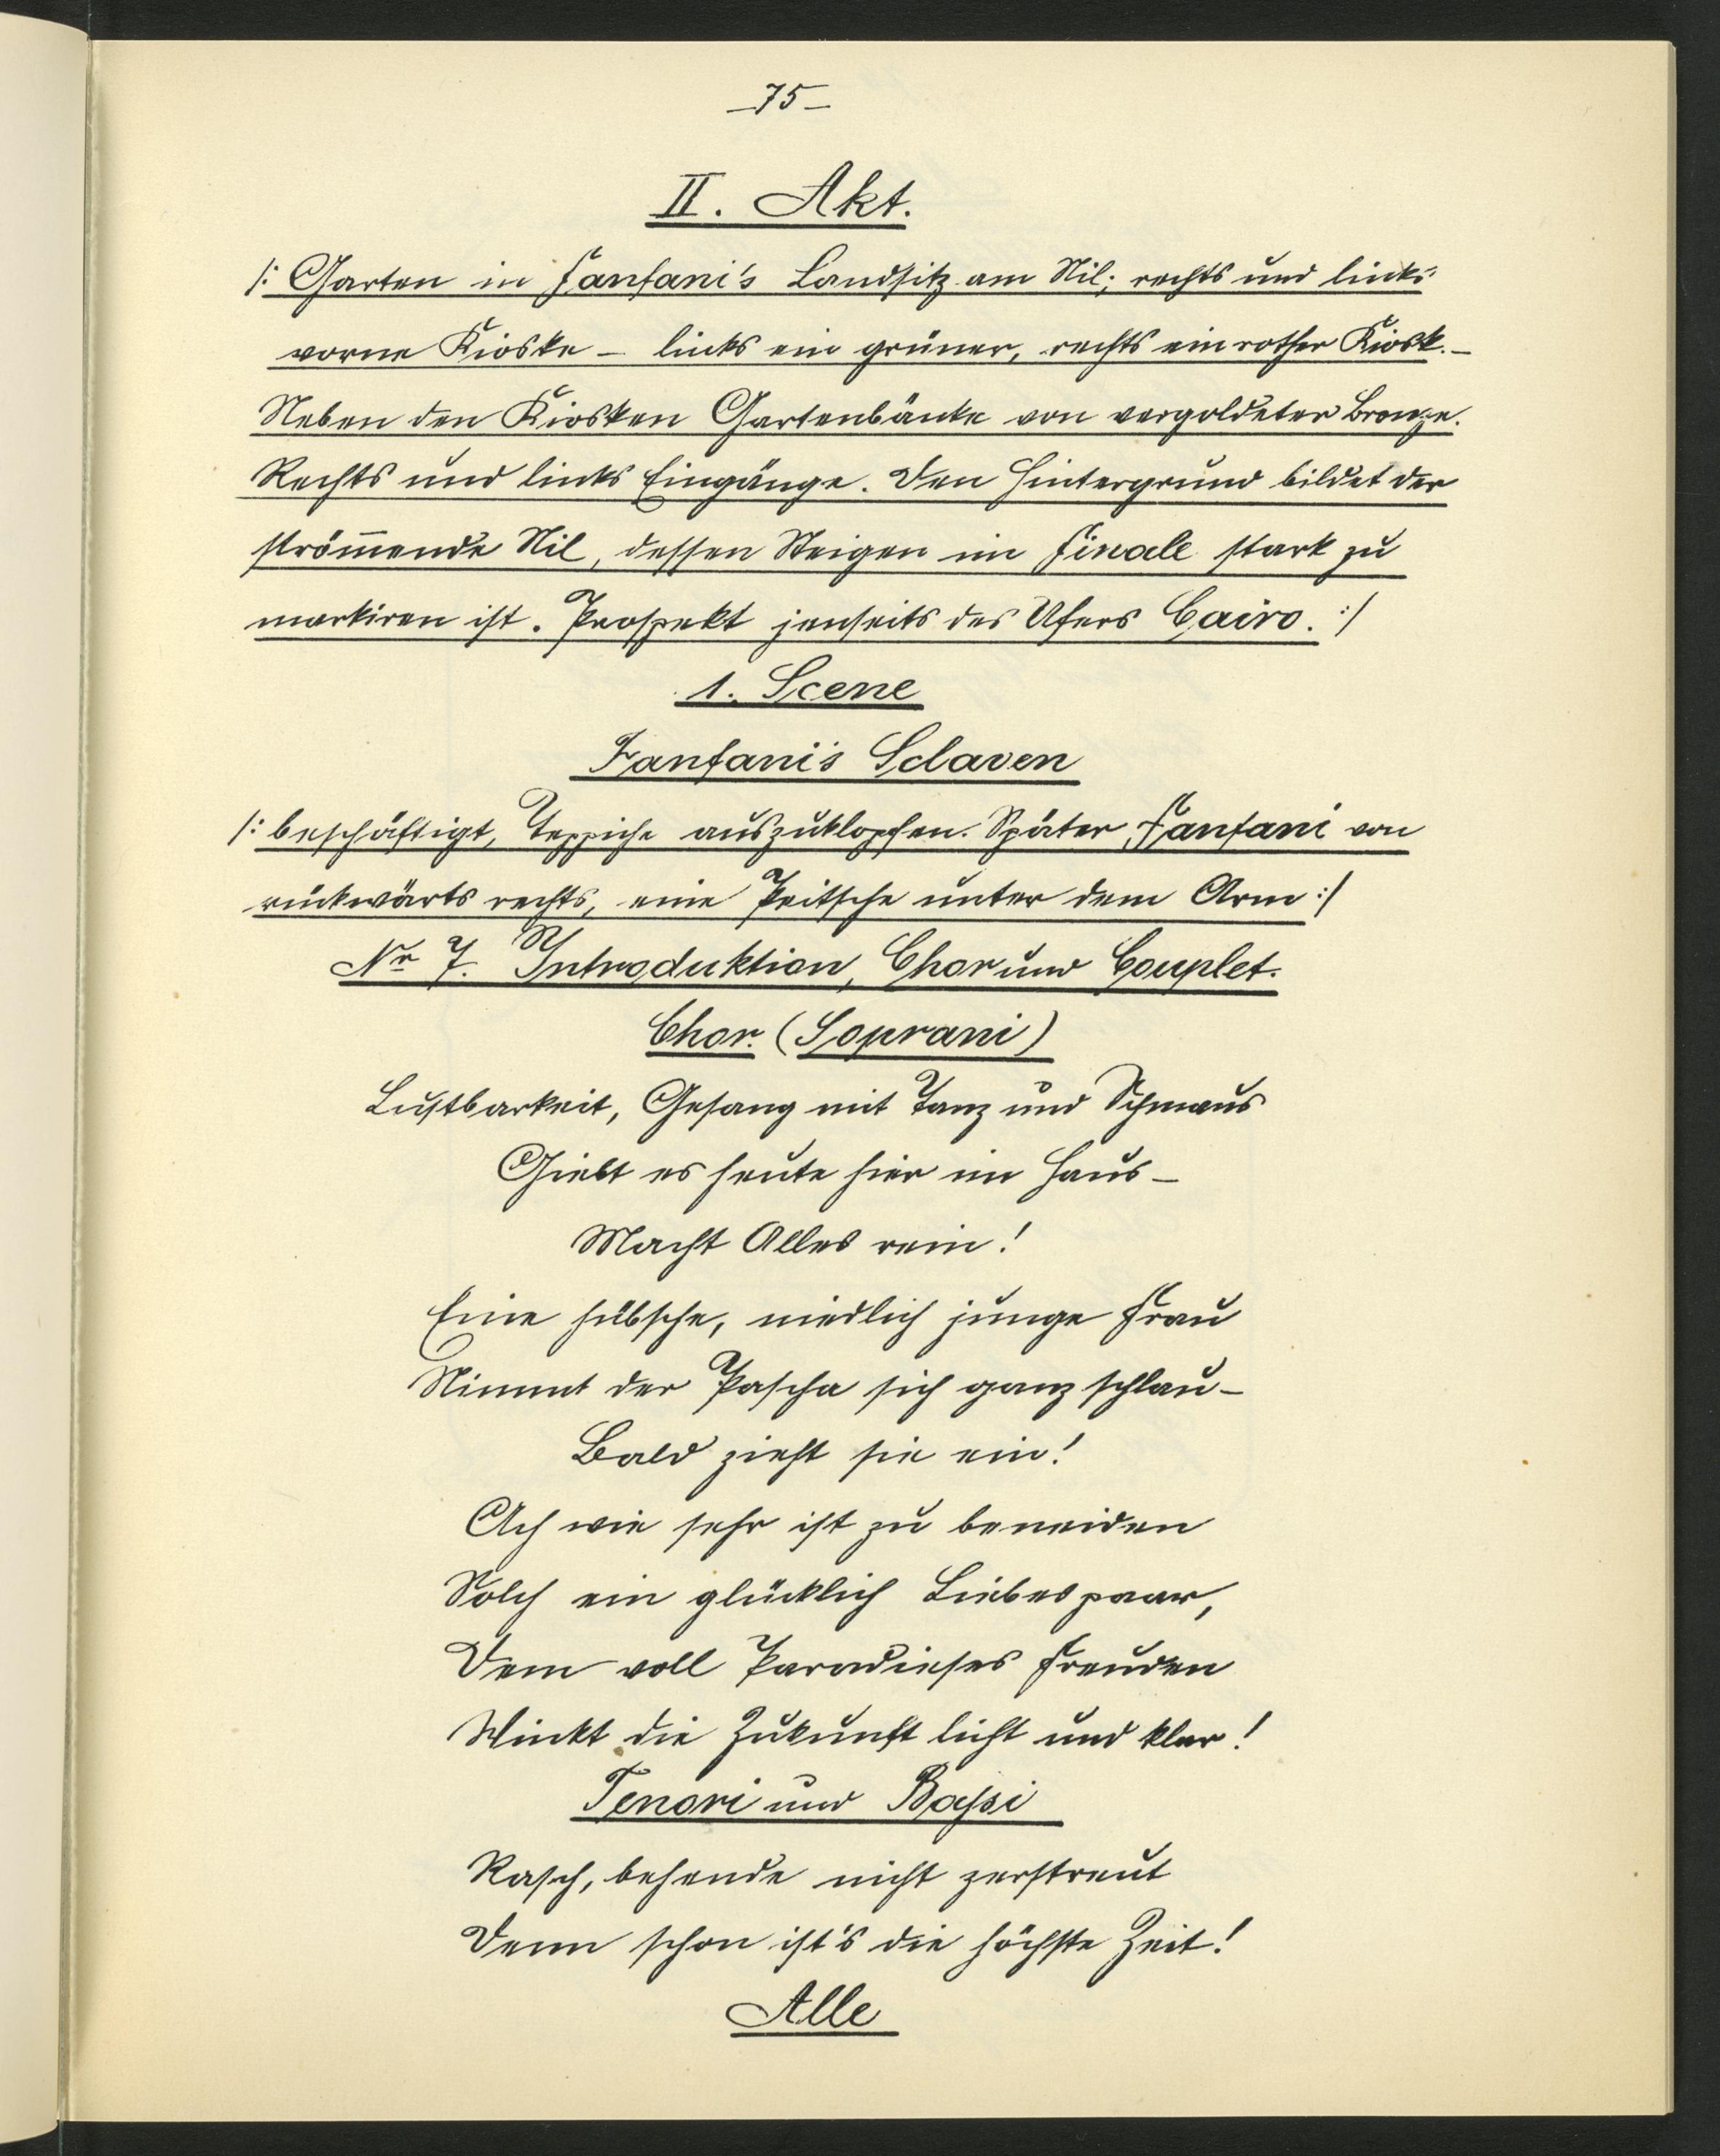 –75–
II. Akt.
/: Garten in Fanfani's Landsitz am Nil; rechts und links
vorne Kioske – links ein grüner, rechts ein rother Kiosk. –
Neben den Kiosken Gartenbänke von vergoldeter Bronze.
Rechts und links Eingänge. Den Hintergrund bildet der
strömende Nil, dessen Steigen im Finale stark zu
markiren ist. Prospekt jenseits des Ufers Cairo. :/
1. Scene
Fanfani's Sclaven
/: beschäftigt, Teppiche auszuklopfen. Später Fanfani von
rückwärts rechts, eine Peitsche unter dem Arm :/
Nr 7. Introduktion, Chor und Couplet.
Chor. (Soprani)
Lustbarkeit, Gesang mit Tanz und Schmaus
Giebt es heute hier im Haus –
Macht Alles rein!
Eine hübsche, niedlich junge Frau
Nimmt der Pascha sich ganz schlau –
Bald zieht sie ein!
Ach wie sehr ist zu beneiden
Solch ein glücklich Liebespaar,
Dem voll Paradieses Freuden
Winkt die Zukunft licht und klar!
Tenori und Bassi
Rasch, behende nicht zerstreut
Denn schon ist's die höchste Zeit!
Alle